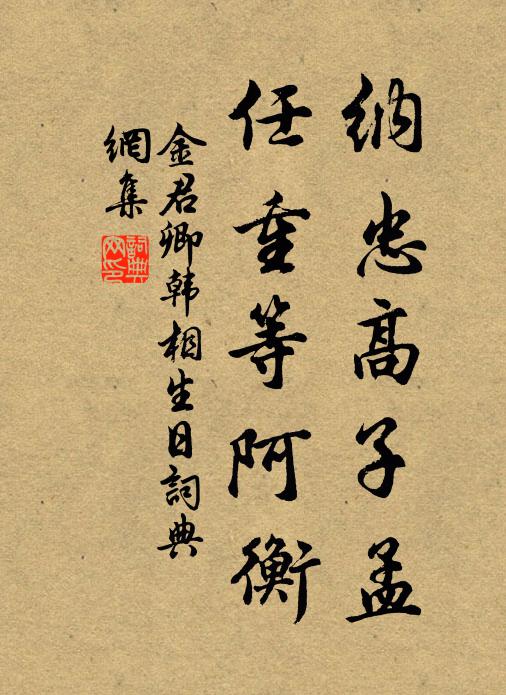 納忠高子孟
任重等阿衡
金君卿韓相生日詞典
網集
詞典
网印